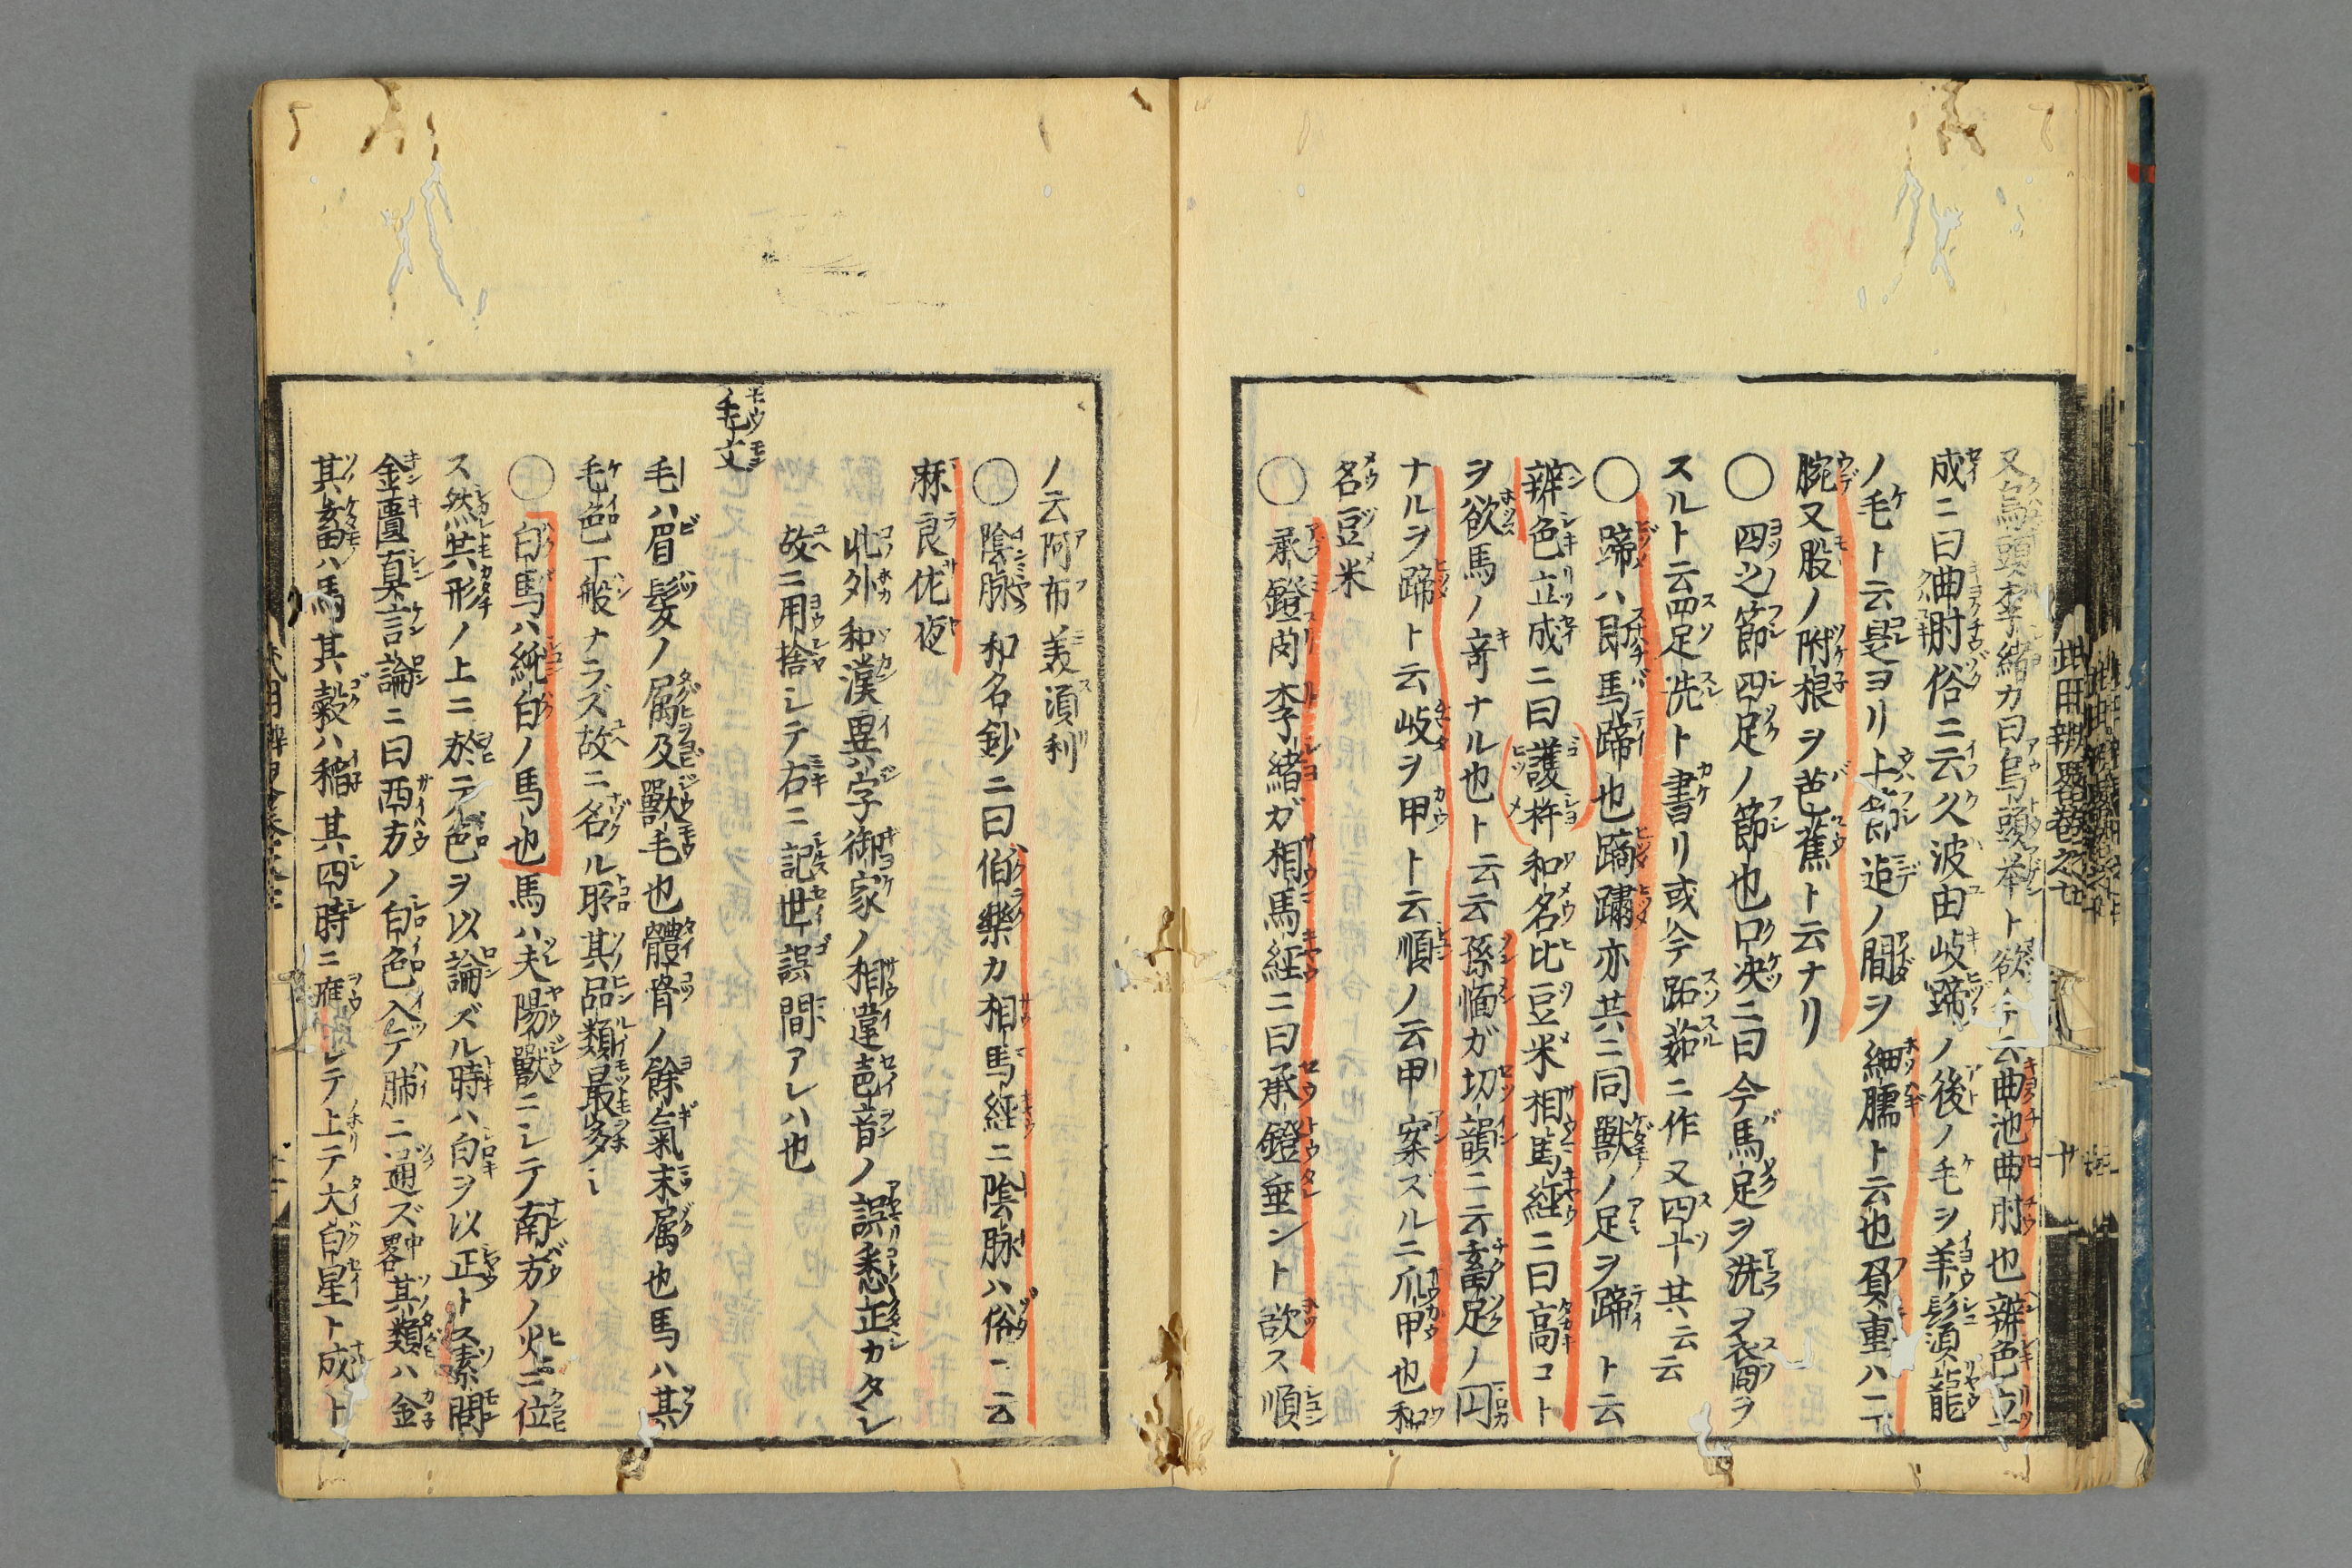 又烏頭李緒カ曰烏頭挙ト欲今云曲池曲肘也辨色立
成ニ曰曲肘俗ニ云久波由岐蹄ノ後ノ毛ヲ羊鬚須龍
ノ毛ト云是ヨリ上節迠ノ間ヲ細臑ト云也負重ハ二
腕又股ノ附根ヲ芭蕉ト云ナリ
◯四之節四足ノ節也口决ニ曰今馬足ヲ洗ヲ裔ヲ
スルト云四足洗ト書リ或今跖茹ニ作又四十其云云
◯蹄ハ即馬蹄也蹢䠥亦共ニ同獣ノ足ヲ蹄ト云
辨色立成ニ曰護杵和名比豆米相馬経ニ曰高コト
ヲ欲馬ノ竒ナル也ト云云孫愐ガ切韻ニ云畜足ノ円
ナルヲ蹄ト云岐ヲ甲ト云順ノ云甲案ズルニ爪甲也和
名豆米
◯承鐙肉李緒ガ相馬経ニ曰承鐙垂ント欲ス順
ノ云阿布美須利
◯陰脉和名鈔ニ曰伯樂カ相馬経ニ陰脉ハ俗ニ云
麻良佐夜
此外和漢異字御家ノ相違声音ノ誤悉正カタシ
故ニ用捨シテ右ニ記世誤間アレハ也
毛文
毛ハ眉髪ノ属及獣毛也體骨ノ餘氣末属也馬ハ其
毛色一般ナラズ故ニ名ル所其品類最多シ
◯白馬ハ純白ノ馬也馬ハ夫陽獣ニシテ南方ノ火ニ位
ス然共形ノ上ニ於テ色ヲ以論ズル時ハ白ヲ以正トス素問
金匱真言論ニ曰西方ノ白色入テ肺ニ通ズ中畧其類ハ金
其畜ハ馬其穀ハ稲其四時ニ應シテ上テ大白星ト成ト